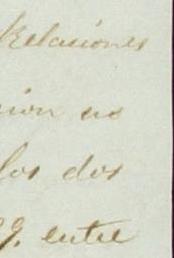 Relaciones
cion no
los dos
9. entre